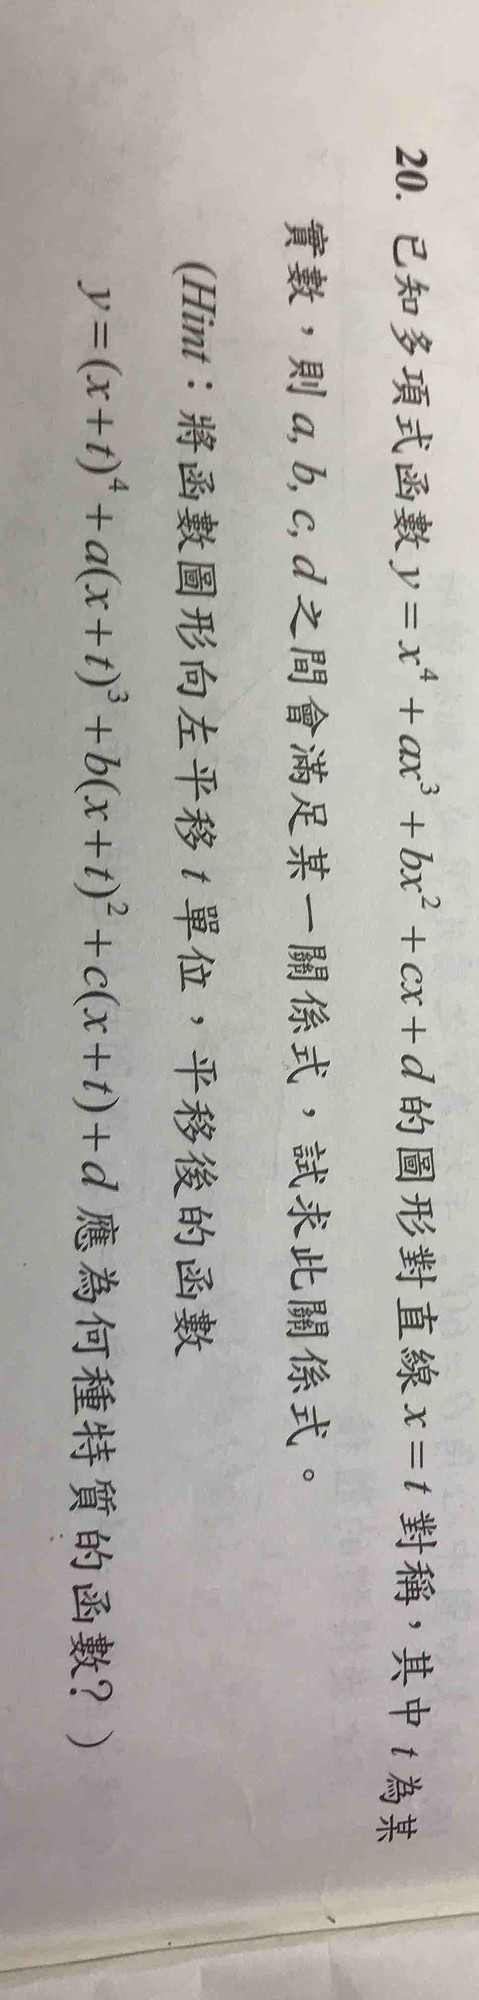 20. 已知多項式函數 y = x⁴ + ax³ + bx² + cx + d 的圖形對直線 x = t 對稱，其中 t 為某
實數，則 a, b, c, d 之間會滿足某一關係式，試求此關係式。
(Hint：將函數圖形向左平移 t 單位，平移後的函數
y = (x + t)⁴ + a(x + t)³ + b(x + t)² + c(x + t) + d 應為何種特質的函數？)